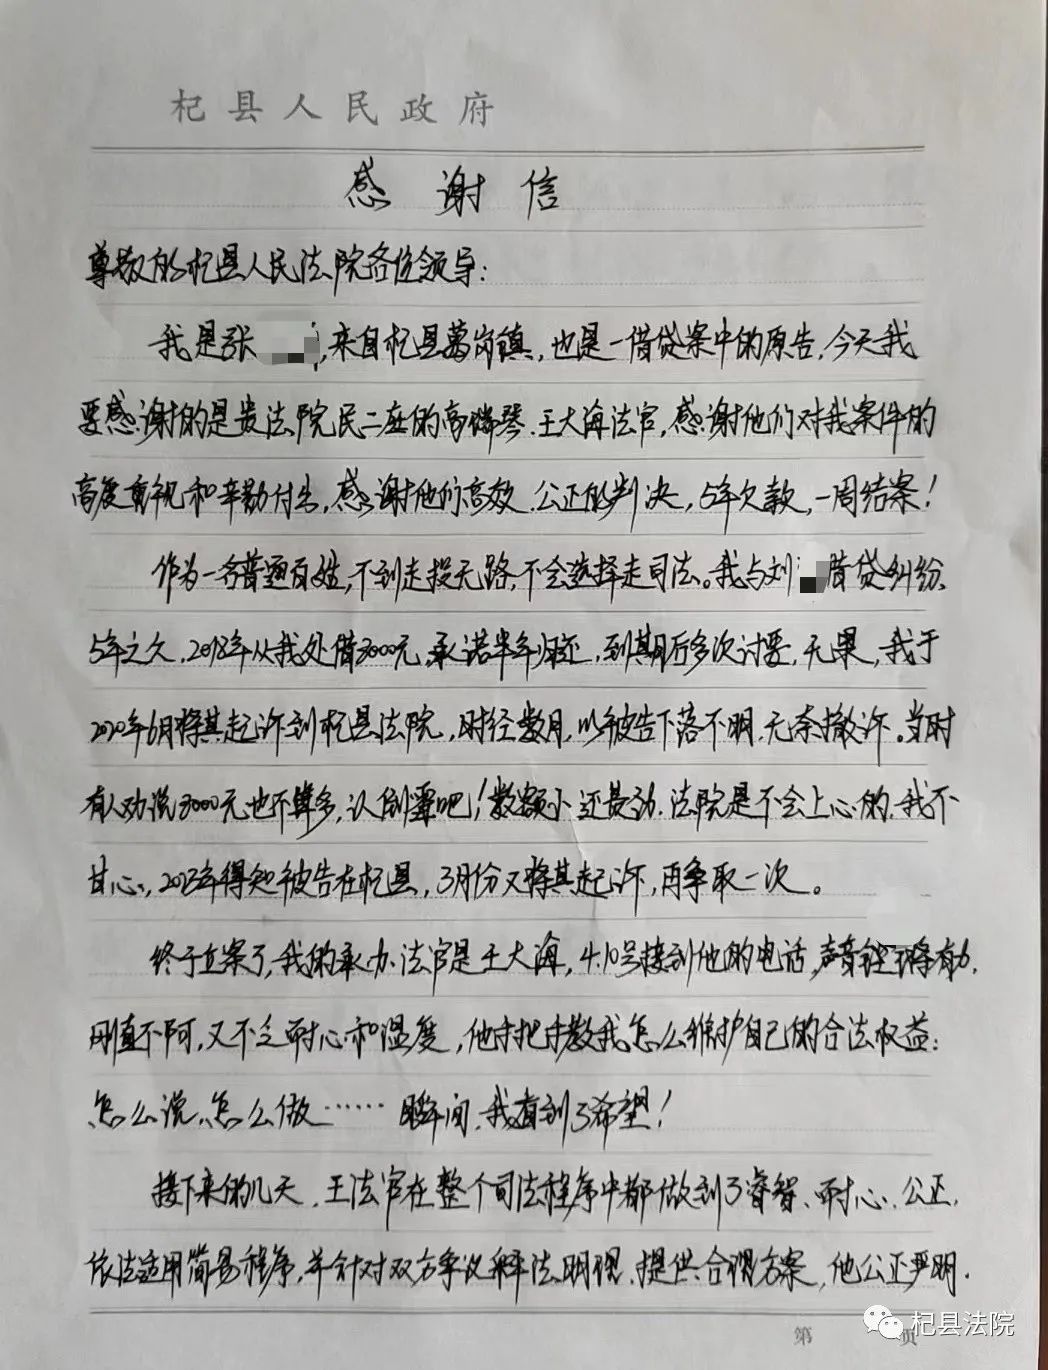 杞县人民政府
感谢信
尊敬的杞县人民法院各位领导：
我是张 ，来自杞县葛岗镇，也是一借贷案中的原告，今天我
要感谢的是贵法院民二庭的高 琴、王大海法官，感谢他们对我案件的
高度重视和辛勤付出，感谢他们高效、公正的判决，5年欠款，一周结案！
作为一名普通百姓，不到走投无路，不会选择走司法。我与刘 借贷纠纷，
5年之久，2018年从我处借3000元，承诺半年归还，到期后多次讨要，无果，我于
2020年6月将其起诉到杞县法院，时经数月，以被告下落不明，无奈撤诉。当时
有人劝说3000元也不算多，认倒霉吧！数额小还是 ，法院是不会上心的，我不
甘心，2023年得知被告在杞县，3月份又将其起诉，再争取一次。
终于立案了，我的承办法官是王大海，4.10号接到他的电话，声音铿锵有力，
刚直不阿，又不乏耐心和温度，他手把手教我怎么维护自己的合法权益：
怎么说，怎么做…… 瞬间，我看到了希望！
接下来的几天，王法官在整个司法程序中都做到了睿智、耐心、公正，
依法适用简易程序，并针对双方争议释法明理，提供合理方案，他公正严明，
第 页
杞县法院